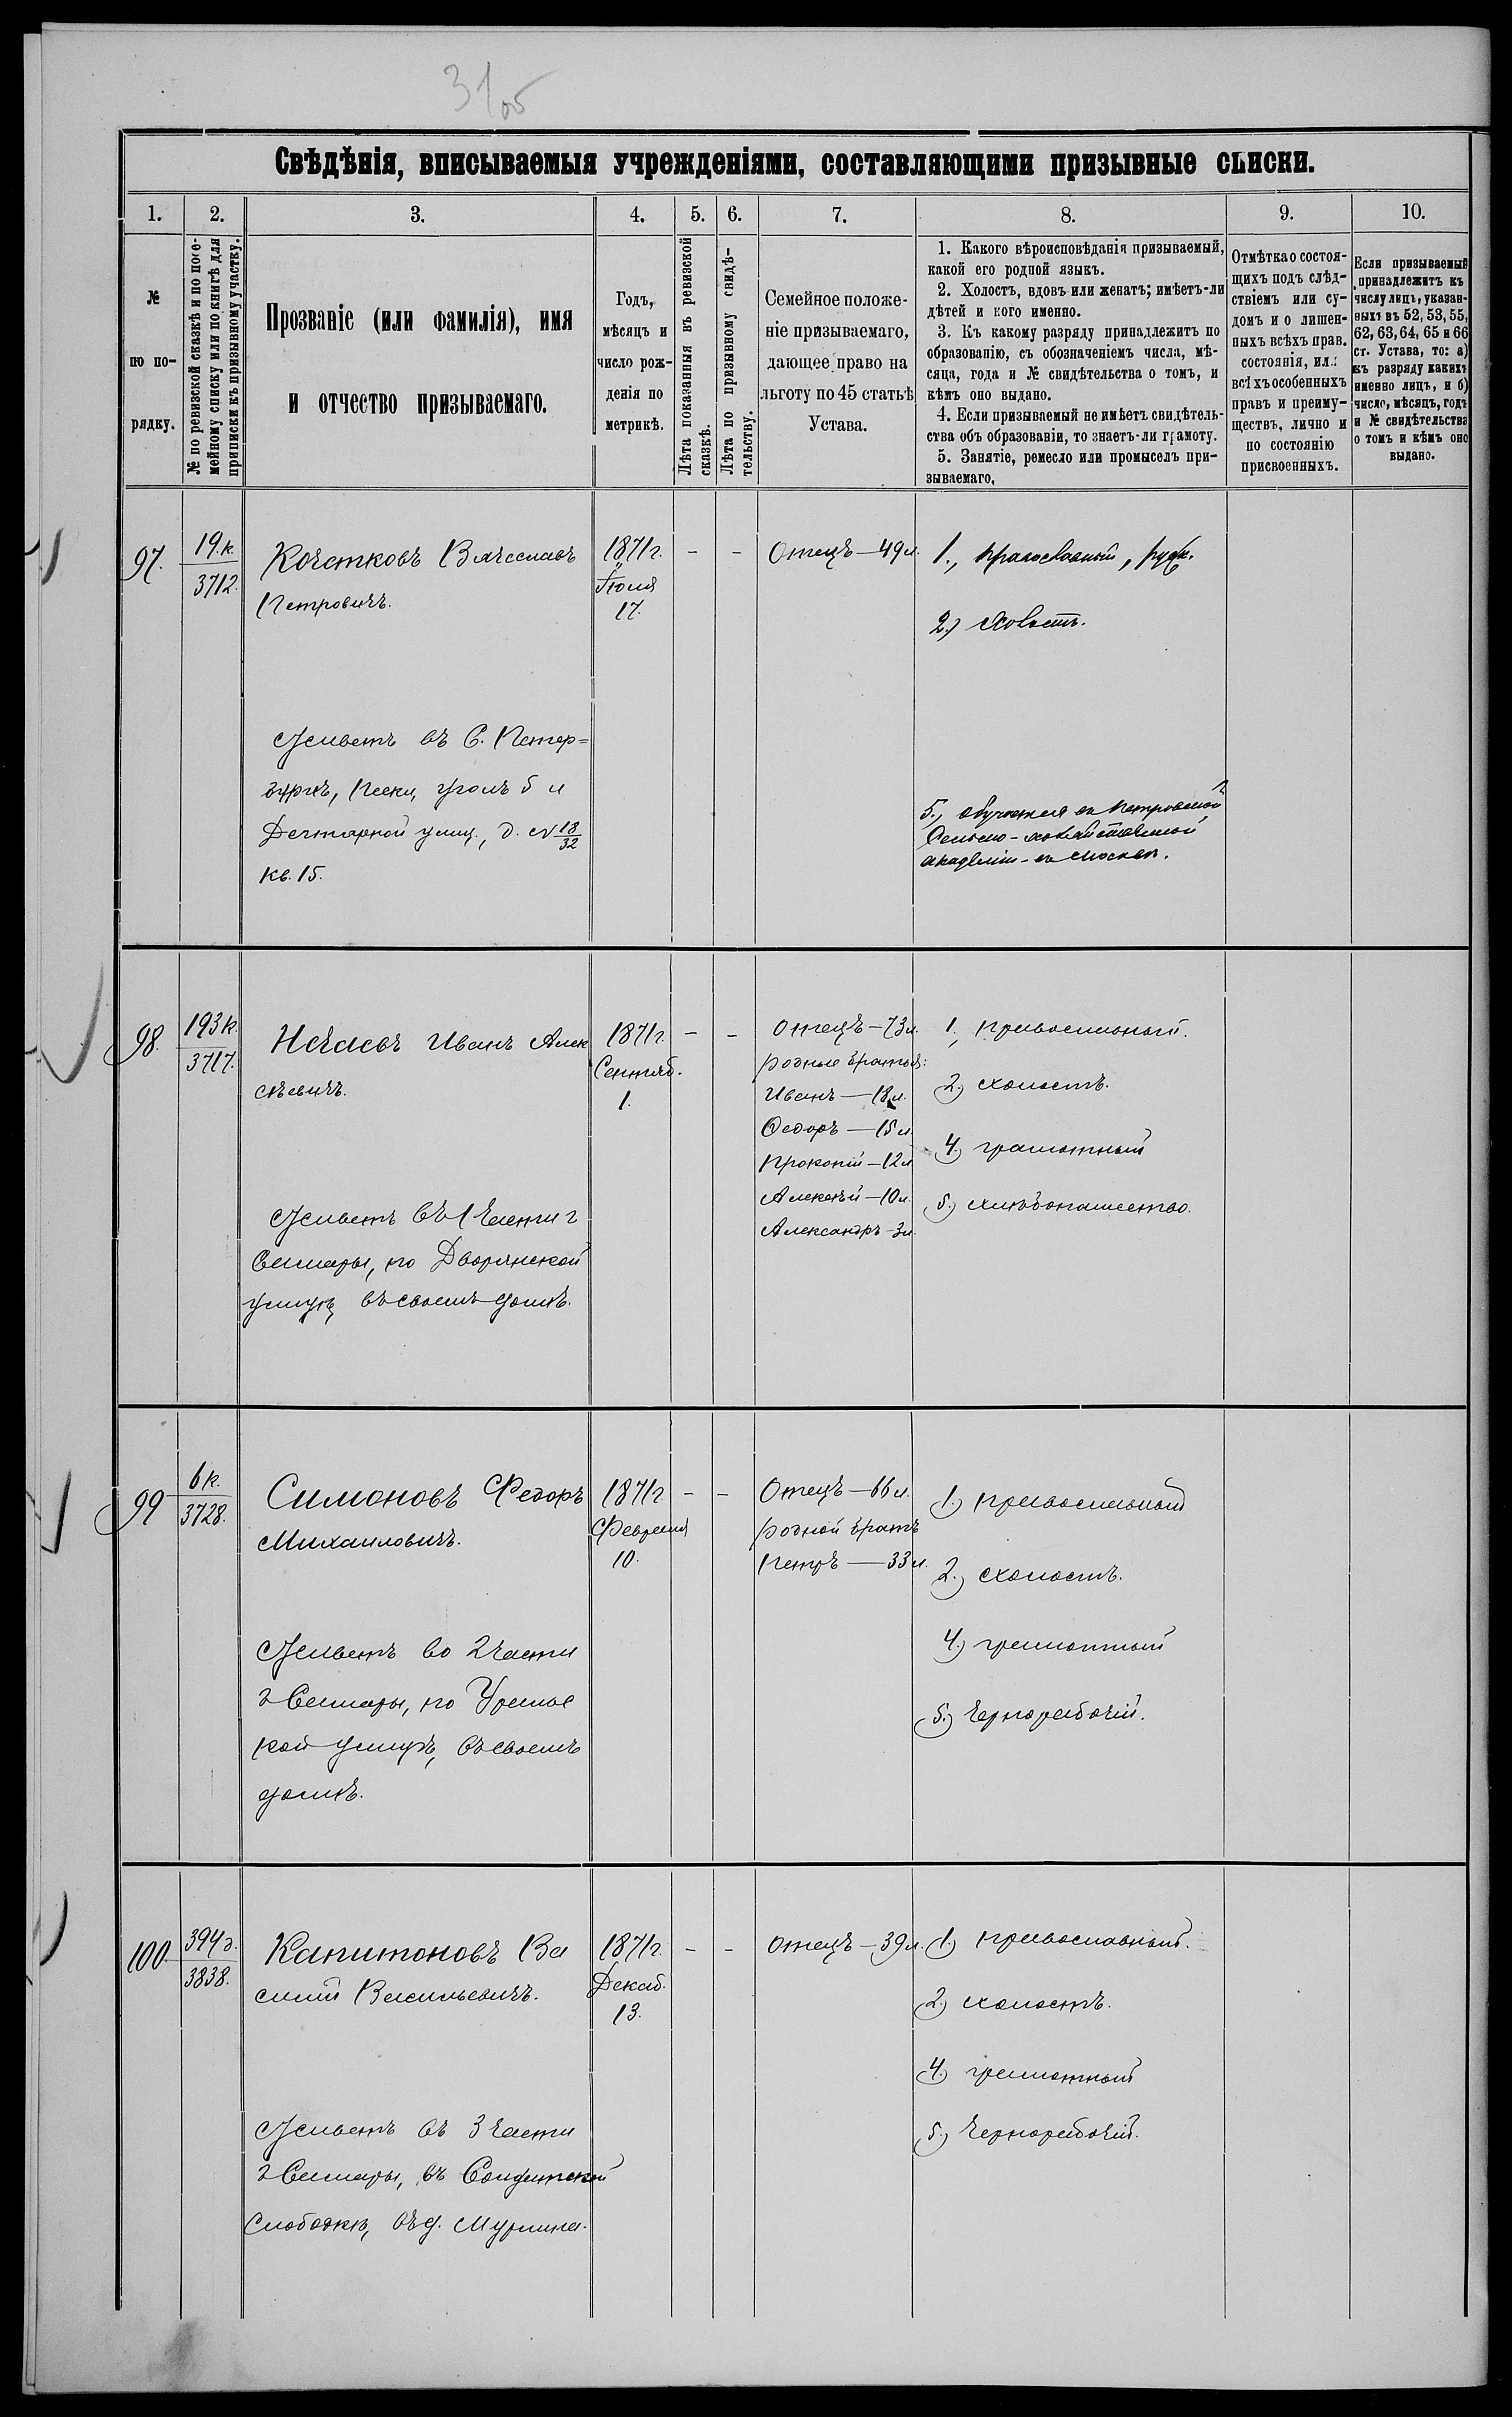 31об
Свѣдѣнія, вписываемыя учрежденіями, составляющими призывные списки.
1. 2. 3. 4. 5. 6. 7. 8. 9. 10.
№
по по-
рядку.
№ по ревизской сказкѣ и по посе-
мейному списку или по книгѣ для
приписки къ призывному участку.
Прозваніе (или фамилія), имя
и отчество призываемаго.
Годъ,
мѣсяцъ и
число рож-
денія по
метрикѣ.
Лѣта показанныя въ ревизской
сказкѣ.
Лѣта по призывному свидѣ-
тельству.
Семейное положе-
ніе призываемаго,
дающее право на
льготу по 45 статьѣ
Устава.
1. Какого вѣроисповѣданія призываемый,
какой его родной языкъ.
2. Холостъ, вдовъ или женатъ; имѣетъ-ли
дѣтей и кого именно.
3. Къ какому разряду принадлежитъ по
образованію, съ обозначеніемъ числа, мѣ-
сяца, года и № свидѣтельства о томъ, и
кѣмъ оно выдано.
4. Если призываемый не имѣетъ свидѣтель-
ства объ образованіи, то знаетъ-ли грамоту.
5. Занятіе, ремесло или промыселъ при-
зываемаго.
Отмѣтка о состоя-
щихъ подъ слѣд-
ствіемъ или су-
домъ и о лишен-
ныхъ всѣхъ прав.
состоянія, или
всѣхъ особенныхъ
правъ и преиму-
ществъ, лично и
по состоянію
присвоенныхъ.
Если призываемый
принадлежитъ къ
числу лицъ, указан-
ныхъ въ 52, 53, 55,
62, 63, 64, 65 и 66
ст. Устава, то: а)
къ разряду какихъ
именно лицъ, и б)
число, мѣсяцъ, годъ
и № свидѣтельства
о томъ и кѣмъ оно
выдано.
97.
19.к.
3712.
Кочетковъ Вячеславъ
Петровичъ.
Живетъ въ С. Петер=
бургѣ, Пески, уголъ 5 и
Дегтярной улиц., д. № 18/32
кв. 15.
1871г.
Іюля
17.
-
-
Отецъ—49л.
1., православный, русск.
2.) холостъ.
5., обучается въ Петровской
Сельско-хозяйственной
академіи - въ Москвѣ.
98.
193к.
3717.
Нечаевъ Иванъ Алек
сѣевичъ.
Живетъ въ 1 части г
Самары, по Дворянской
улицѣ въ своемъ домѣ.
1871г.
Сентяб.
1.
-
-
Отецъ—73л.
родные братья:
Иванъ—18л.
Ѳедоръ—15л.
Прокопій—12л
Алексѣй—10л.
Александръ-3л.
1., православный.
2.) холостъ.
4.) грамотный
5.) хлѣбопашество.
99
6к.
3728.
Симоновъ Федоръ
Михаиловичъ.
Живетъ во 2 части
г Самары, по Уральс
кой улицѣ, въ своемъ
домѣ.
1871г
Февраля
10.
-
-
Отецъ—66л.
родной братъ
Петръ—33л.
1.) православный
2.) холостъ.
4.) грамотный
5.) чернорабочій.
100.
394г.
3838.
Капитоновъ Ва
силій Васильевичъ.
Живетъ въ 3 части
г Самары, въ Солдатской
Слободкѣ, въ д. Мурзина.
1871г.
Декаб.
13.
-
-
Отецъ—39л.
1.) православный.
2.) холостъ.
4.) грамотный
5.) чернорабочій.